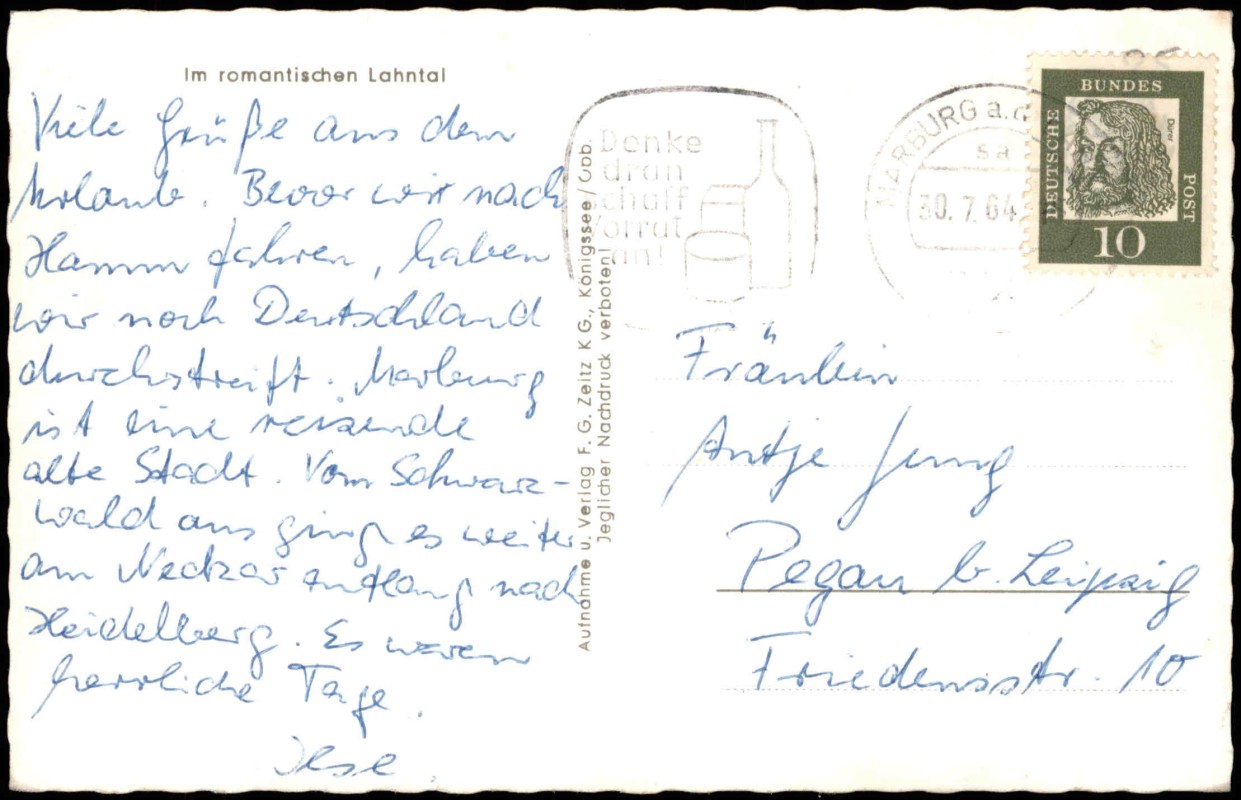 Im romantischen Lahntal
Viele Grüße aus dem
Urlaub. Bevor wir nach
Hamm fahren, haben
wir noch Deutschland
durchstreift. Marburg
ist eine reizende
alte Stadt. Vom Schwarz-
wald aus ging es weiter
am Neckar entlang nach
Heidelberg. Es waren
herrliche Tage.
Ilse.
Aufnahme u. Verlag F. G. Zeitz KG., Königssee/Obb.
Jeglicher Nachdruck verboten!
Denke
dran
schaff
Vorrat
an!
MARBURG a.d.
30.7.64
DEUTSCHE
BUNDES
POST
Dürer
10
Fräulein
Antje Jung
Pegau b. Leipzig
Friedensstr. 10